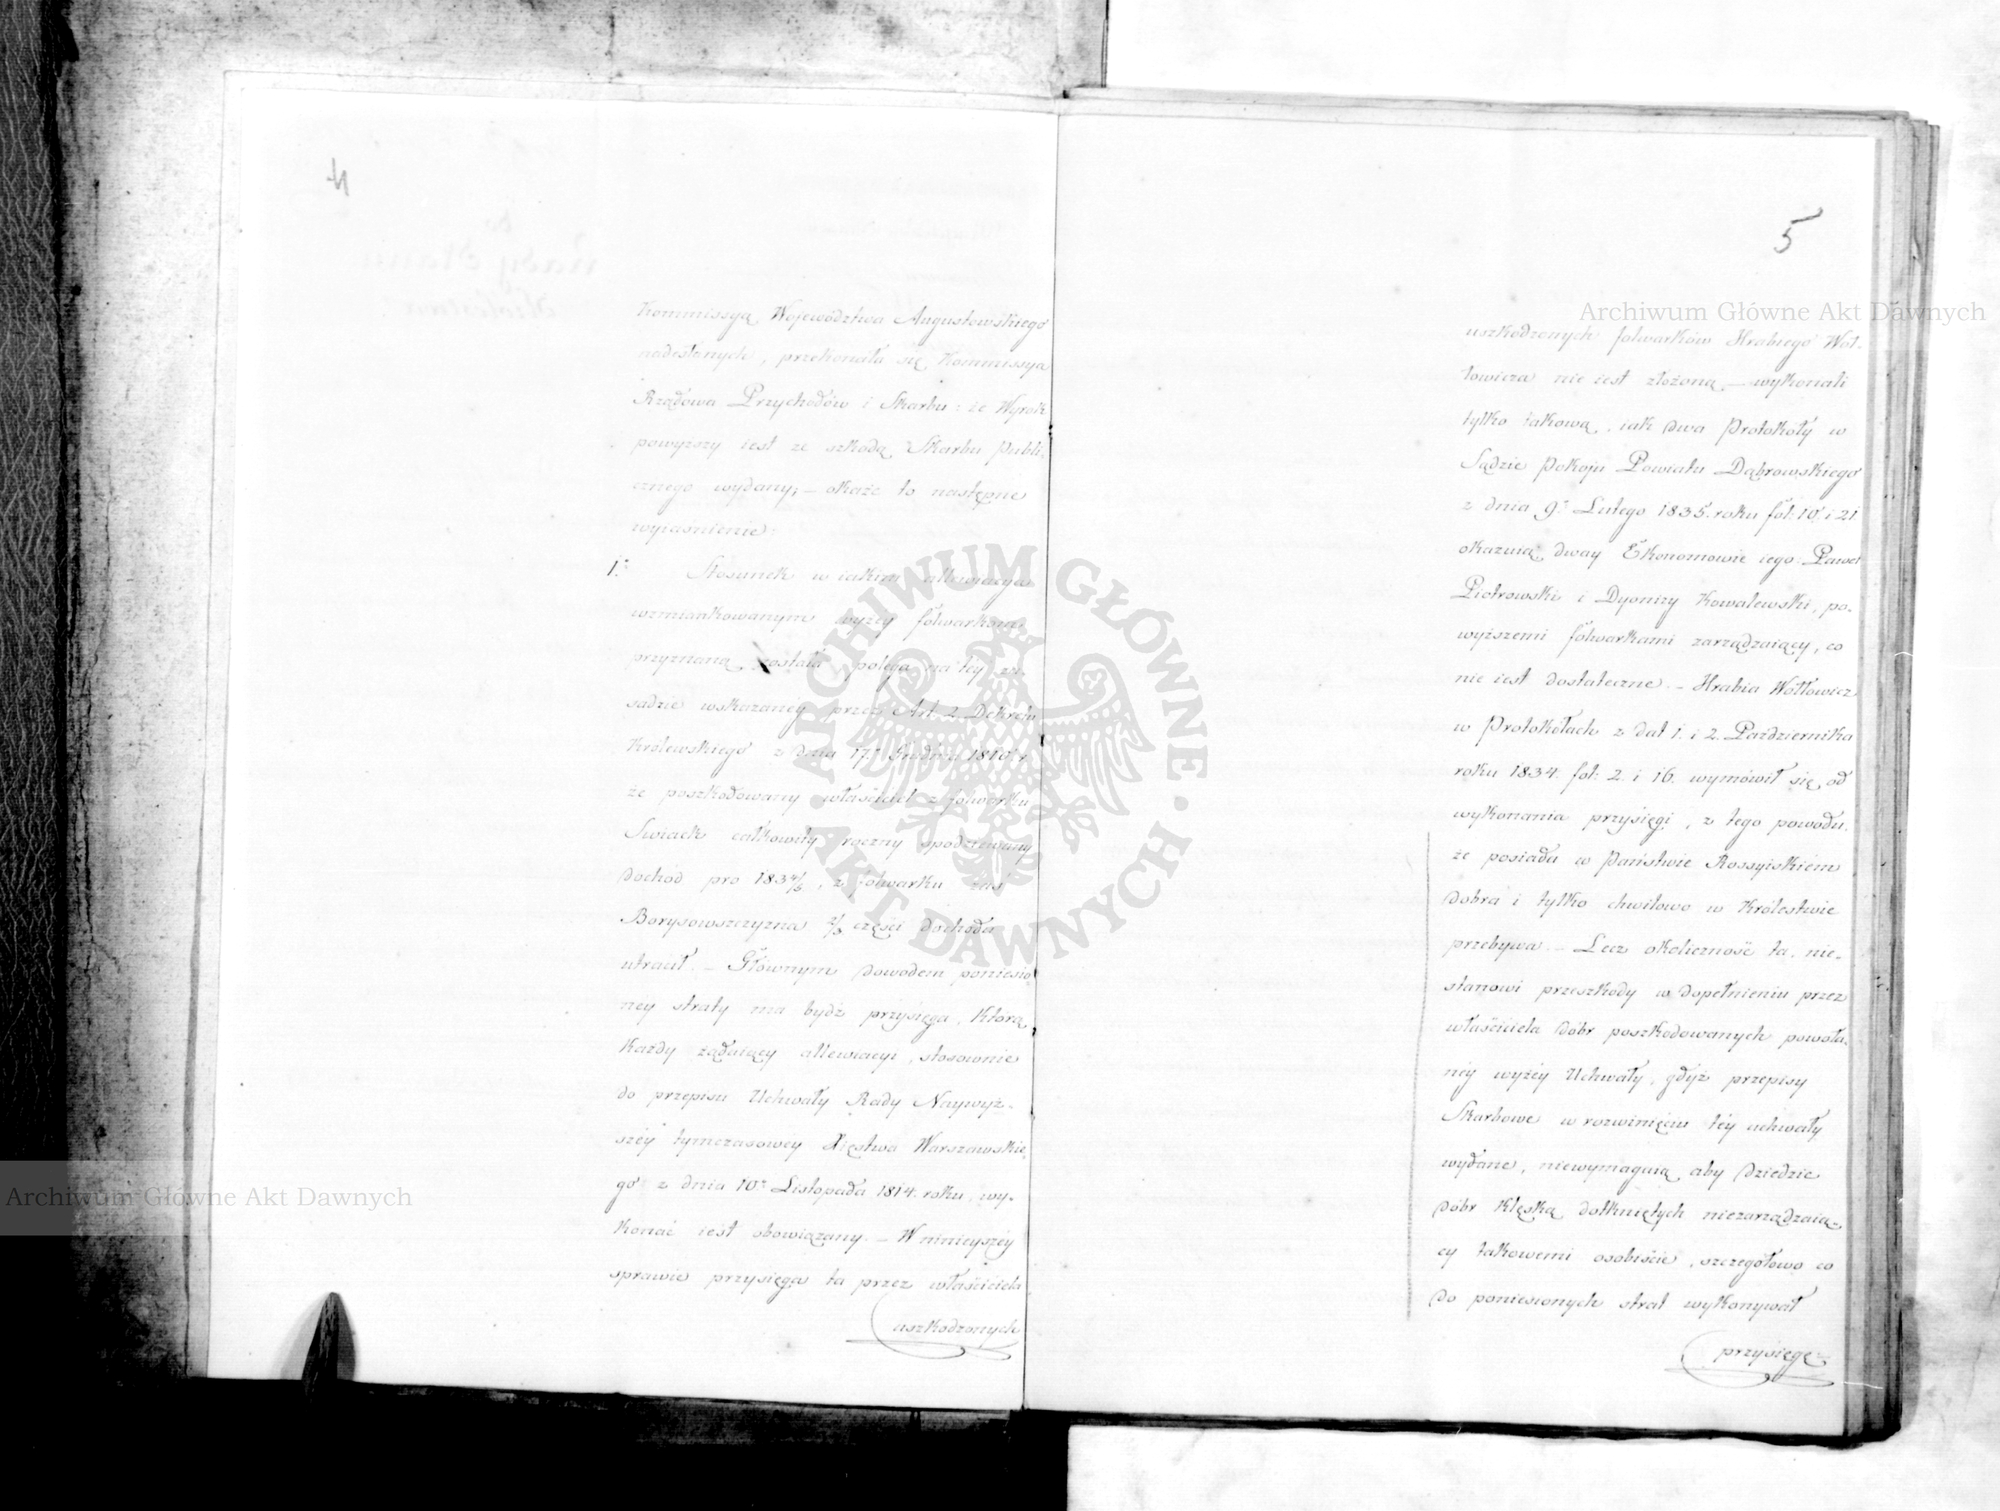 Kommissyą Województwa Augustowskiego
nadesłanych, przekonała się Kommissya
Rządowa Przychodów i Skarbu: że Wyrok
powyższy iest ze szkodą Skarbu Publi-
cznego wydany; – okaże to następne
wyiasnienie:
1.° Stosunek w iakim allewiacya
wzmiankowanym wyżey folwarkom
przyznaną została polega na tey za-
sadzie wskazaney przez Art. 2. Dekretu
Królewskiego z dnia 17. Grudnia 1810 r.
że poszkodowany właściciel z folwarku
Swiack całkowity roczny spodziewany
dochod pro 1834/5, z folwarku zaś
Borysowszczyzna 2/3 części dochodu
utracił. – Głównym dowodem poniesio
ney straty ma bydź przysięga, którą
każdy żądaiący allewiacyi, stosownie
do przepisu Uchwały Rady Naywyż-
széy tymczasowey Xięstwa Warszawskie
go z dnia 10. Listopada 1814. roku, wy-
konać iest obowiązany. – W ninieyszéy
sprawie przysięga ta przez właściciela
uszkodzonych
5
uszkodzonych folwarków Hrabiego Woł-
łowicza nie iest złożoną, – wykonali
tylko takową, iak dwa Protokoły w
Sądzie Pokoju Powiatu Dąbrowskiego
z dnia 9. Lutego 1835. roku fol: 10 i 21
okazuią, dway Ekonomowie iego: Paweł
Piotrowski i Dyonizy Kowalewski, po-
wyższemi folwarkami zarządzaiący, co
nie iest dostateczne. – Hrabia Wołłowicz
w Protokołach z dat 1. i 2. Pazdziernika
roku 1834. fol: 2. i 16. wymówił się, od
wykonania przysięgi, z tego powodu,
że posiada w Państwie Rossyiskiém
dobra i tylko chwilowo w Królestwie
przebywa. – Lecz okoliczność ta, nie-
stanowi przeszkody w dopełnieniu przez
właściciela dóbr poszkodowanych powoła-
néy wyżéy Uchwały, gdyż przepisy
Skarbowe w rozwinięciu téy uchwały
wydane, niewymagaią, aby dziedzic
dóbr klęską dotkniętych niezarządzaią-
cy takowemi osobiście, szczegółowo co
do poniesionych strat wykonywał
przysięgę
Archiwum Główne Akt Dawnych
Archiwum Główne Akt Dawnych
ARCHIWUM GŁÓWNE · AKT DAWNYCH ·